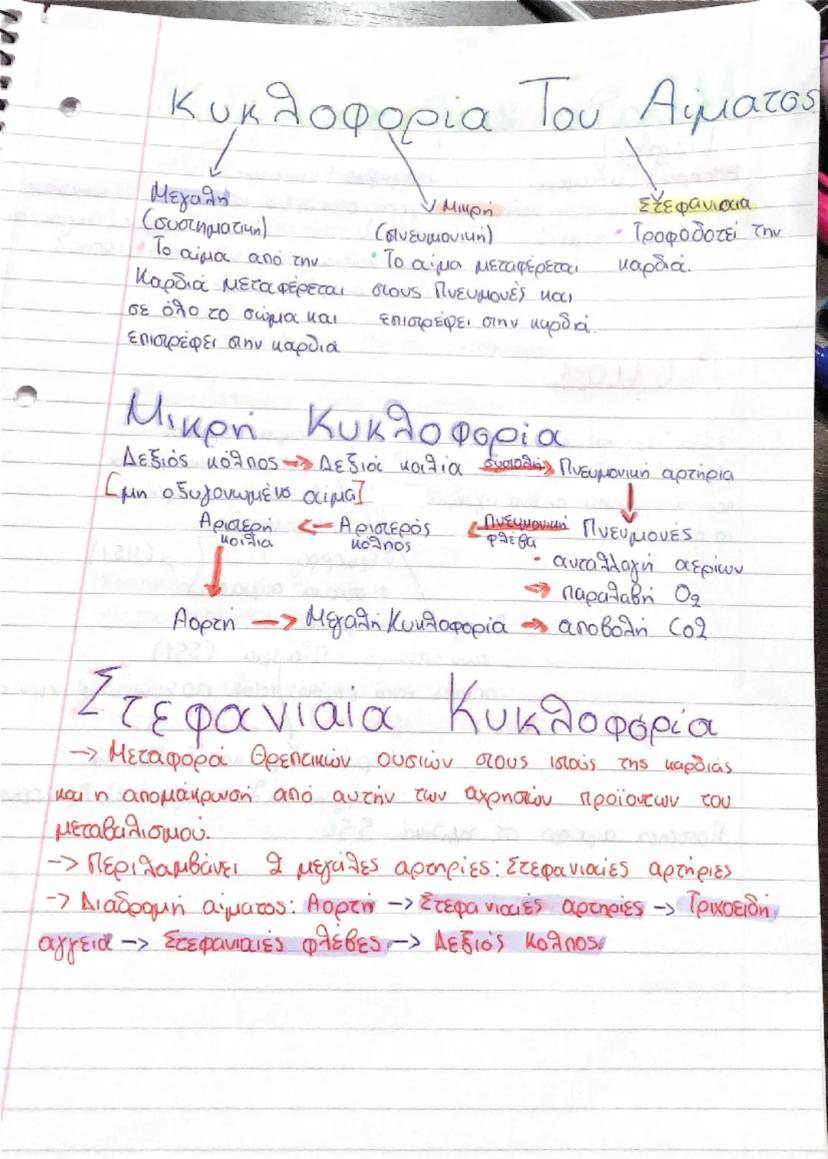 Κυκλοφορία Του Αιματος
Μεγαλη
(συστηματική)
• Το αίμα από την
καρδιά μεταφέρεται
σε όλο το σώμα και
επιστρέφει στην καρδιά
Μικρή
(πνευμονική)
• Το αίμα μεταφέρεται
στους Πνευμονές και
επιστρέφει στην καρδιά.
Στεφανιαια
• Τροφοδοτεί την
καρδιά.
Μικρή Κυκλοφορία
Δεξιός κόλπος → Δεξιά κοιλία συστολή → Πνευμονική αρτήρια
[μη οξυγονωμένο αίμα] ↓
Αριστερή κοιλια ← Αριστερός κόλπος ← Πνευμονική φλέβα Πνευμονές
↓ • ανταλλαγή αερίων
→ παραλαβή O2
Αορτή → Μεγαλή Κυκλοφορία → αποβολή Co2
Στεφανιαία Κυκλοφορία
→ Μεταφορά Θρεπτικών ουσιών στους ιστούς της καρδιάς
και η απομάκρυνσή από αυτήν των αχρηστών προϊοντων του
μεταβολισμού.
→ Περιλαμβάνει 2 μεγάλες αρτηρίες: Στεφανιαιές αρτήριες
→ Διαδρομή αίματος: Αορτή → Στεφανιαιές αρτηρίες → Τριχοειδή
αγγεια → Στεφανιαιές φλέβες → Δεξιός κολπος